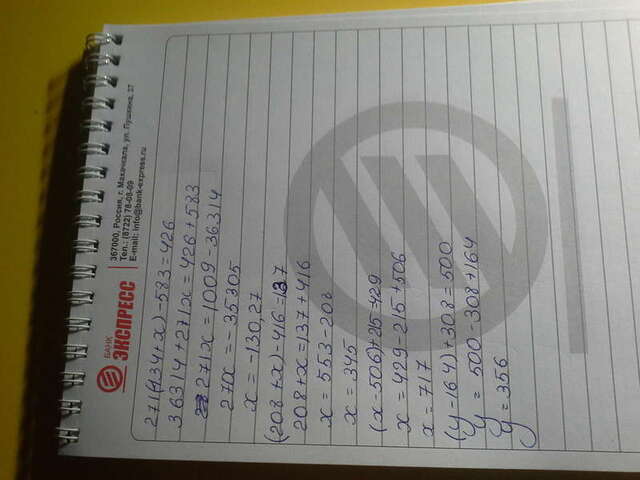 БАНК
ЭКСПРЕСС
367000, Россия, г. Махачкала, ул. Пушкина, 37
Тел.: (8722) 78-08-09
E-mail: info@bank-express.ru
271(134+x)-583=426
36314+271x=426+583
271x=1009-36314
271x=-35305
x=-130,27
(208+x)-416=137
208+x=137+416
x=553-208
x=345
(x-506)+215=429
x=429-215+506
x=717
(y-164)+308=500
y=500-308+164
y=356